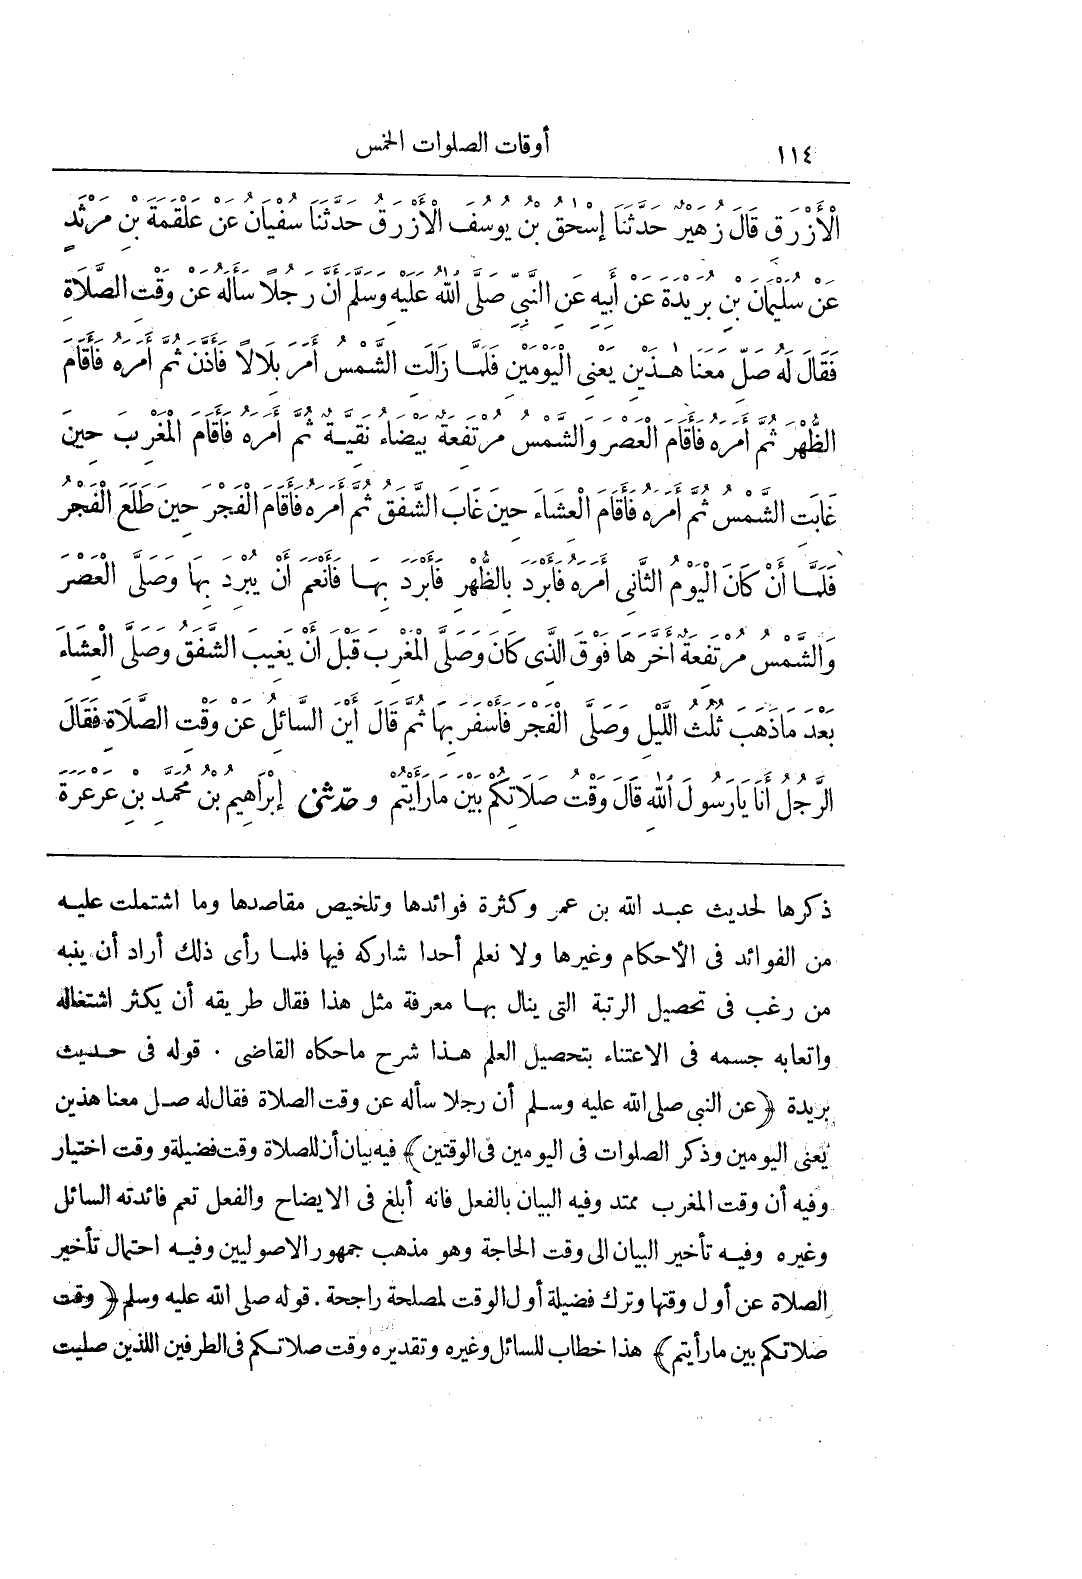 ١١٤
أوقات الصلوات الخمس
الْأَزْرَقِ قَالَ زُهَيْرٌ حَدَّثَنَا إِسْحٰقُ بْنُ يُوسُفَ الْأَزْرَقُ حَدَّثَنَا سُفْيَانُ عَنْ عَلْقَمَةَ بْنِ مَرْثَدٍ
عَنْ سُلَيْمَانَ بْنِ بُرَيْدَةَ عَنْ أَبِيهِ عَنِ النَّبِيِّ صَلَّى اللهُ عَلَيْهِ وَسَلَّمَ أَنَّ رَجُلًا سَأَلَهُ عَنْ وَقْتِ الصَّلَاةِ
فَقَالَ لَهُ صَلِّ مَعَنَا هٰذَيْنِ يَعْنِى الْيَوْمَيْنِ فَلَمَّا زَالَتِ الشَّمْسُ أَمَرَ بِلَالًا فَأَذَّنَ ثُمَّ أَمَرَهُ فَأَقَامَ
الظُّهْرَ ثُمَّ أَمَرَهُ فَأَقَامَ الْعَصْرَ وَالشَّمْسُ مُرْتَفِعَةٌ بَيْضَاءُ نَقِيَّةٌ ثُمَّ أَمَرَهُ فَأَقَامَ الْمَغْرِبَ حِينَ
غَابَتِ الشَّمْسُ ثُمَّ أَمَرَهُ فَأَقَامَ الْعِشَاءَ حِينَ غَابَ الشَّفَقُ ثُمَّ أَمَرَهُ فَأَقَامَ الْفَجْرَ حِينَ طَلَعَ الْفَجْرُ
فَلَمَّا أَنْ كَانَ الْيَوْمُ الثَّانِى أَمَرَهُ فَأَبْرَدَ بِالظُّهْرِ فَأَبْرَدَ بِهَا فَأَنْعَمَ أَنْ يُبْرِدَ بِهَا وَصَلَّى الْعَصْرَ
وَالشَّمْسُ مُرْتَفِعَةٌ أَخَّرَهَا فَوْقَ الَّذِى كَانَ وَصَلَّى الْمَغْرِبَ قَبْلَ أَنْ يَغِيبَ الشَّفَقُ وَصَلَّى الْعِشَاءَ
بَعْدَ مَا ذَهَبَ ثُلُثُ اللَّيْلِ وَصَلَّى الْفَجْرَ فَأَسْفَرَ بِهَا ثُمَّ قَالَ أَيْنَ السَّائِلُ عَنْ وَقْتِ الصَّلَاةِ فَقَالَ
الرَّجُلُ أَنَا يَا رَسُولَ اللهِ قَالَ وَقْتُ صَلَاتِكُمْ بَيْنَ مَا رَأَيْتُمْ و حَدَّثَنِى إِبْرَاهِيمُ بْنُ مُحَمَّدِ بْنِ عَرْعَرَةَ
ذكرها لحديث عبد الله بن عمر وكثرة فوائدها وتلخيص مقاصدها وما اشتملت عليه
من الفوائد فى الأحكام وغيرها ولا نعلم أحدا شاركه فيها فلما رأى ذلك أراد أن ينبه
من رغب فى تحصيل الرتبة التى ينال بها معرفة مثل هذا فقال طريقه أن يكثر اشتغاله
واتعابه جسمه فى الاعتناء بتحصيل العلم هذا شرح ماحكاه القاضى . قوله فى حديث
بريدة ﴿عن النبى صلى الله عليه وسلم أن رجلا سأله عن وقت الصلاة فقال له صل معنا هذين
يعنى اليومين وذكر الصلوات فى اليومين فى الوقتين﴾ فيه بيان أن للصلاة وقت فضيلة ووقت اختيار
وفيه أن وقت المغرب ممتد وفيه البيان بالفعل فانه أبلغ فى الايضاح والفعل تعم فائدته السائل
وغيره وفيه تأخير البيان الى وقت الحاجة وهو مذهب جمهور الاصوليين وفيه احتمال تأخير
الصلاة عن أول وقتها وترك فضيلة أول الوقت لمصلحة راجحة . قوله صلى الله عليه وسلم ﴿وقت
صلاتكم بين مارأيتم﴾ هذا خطاب للسائل وغيره وتقديره وقت صلاتكم فى الطرفين اللذين صليت